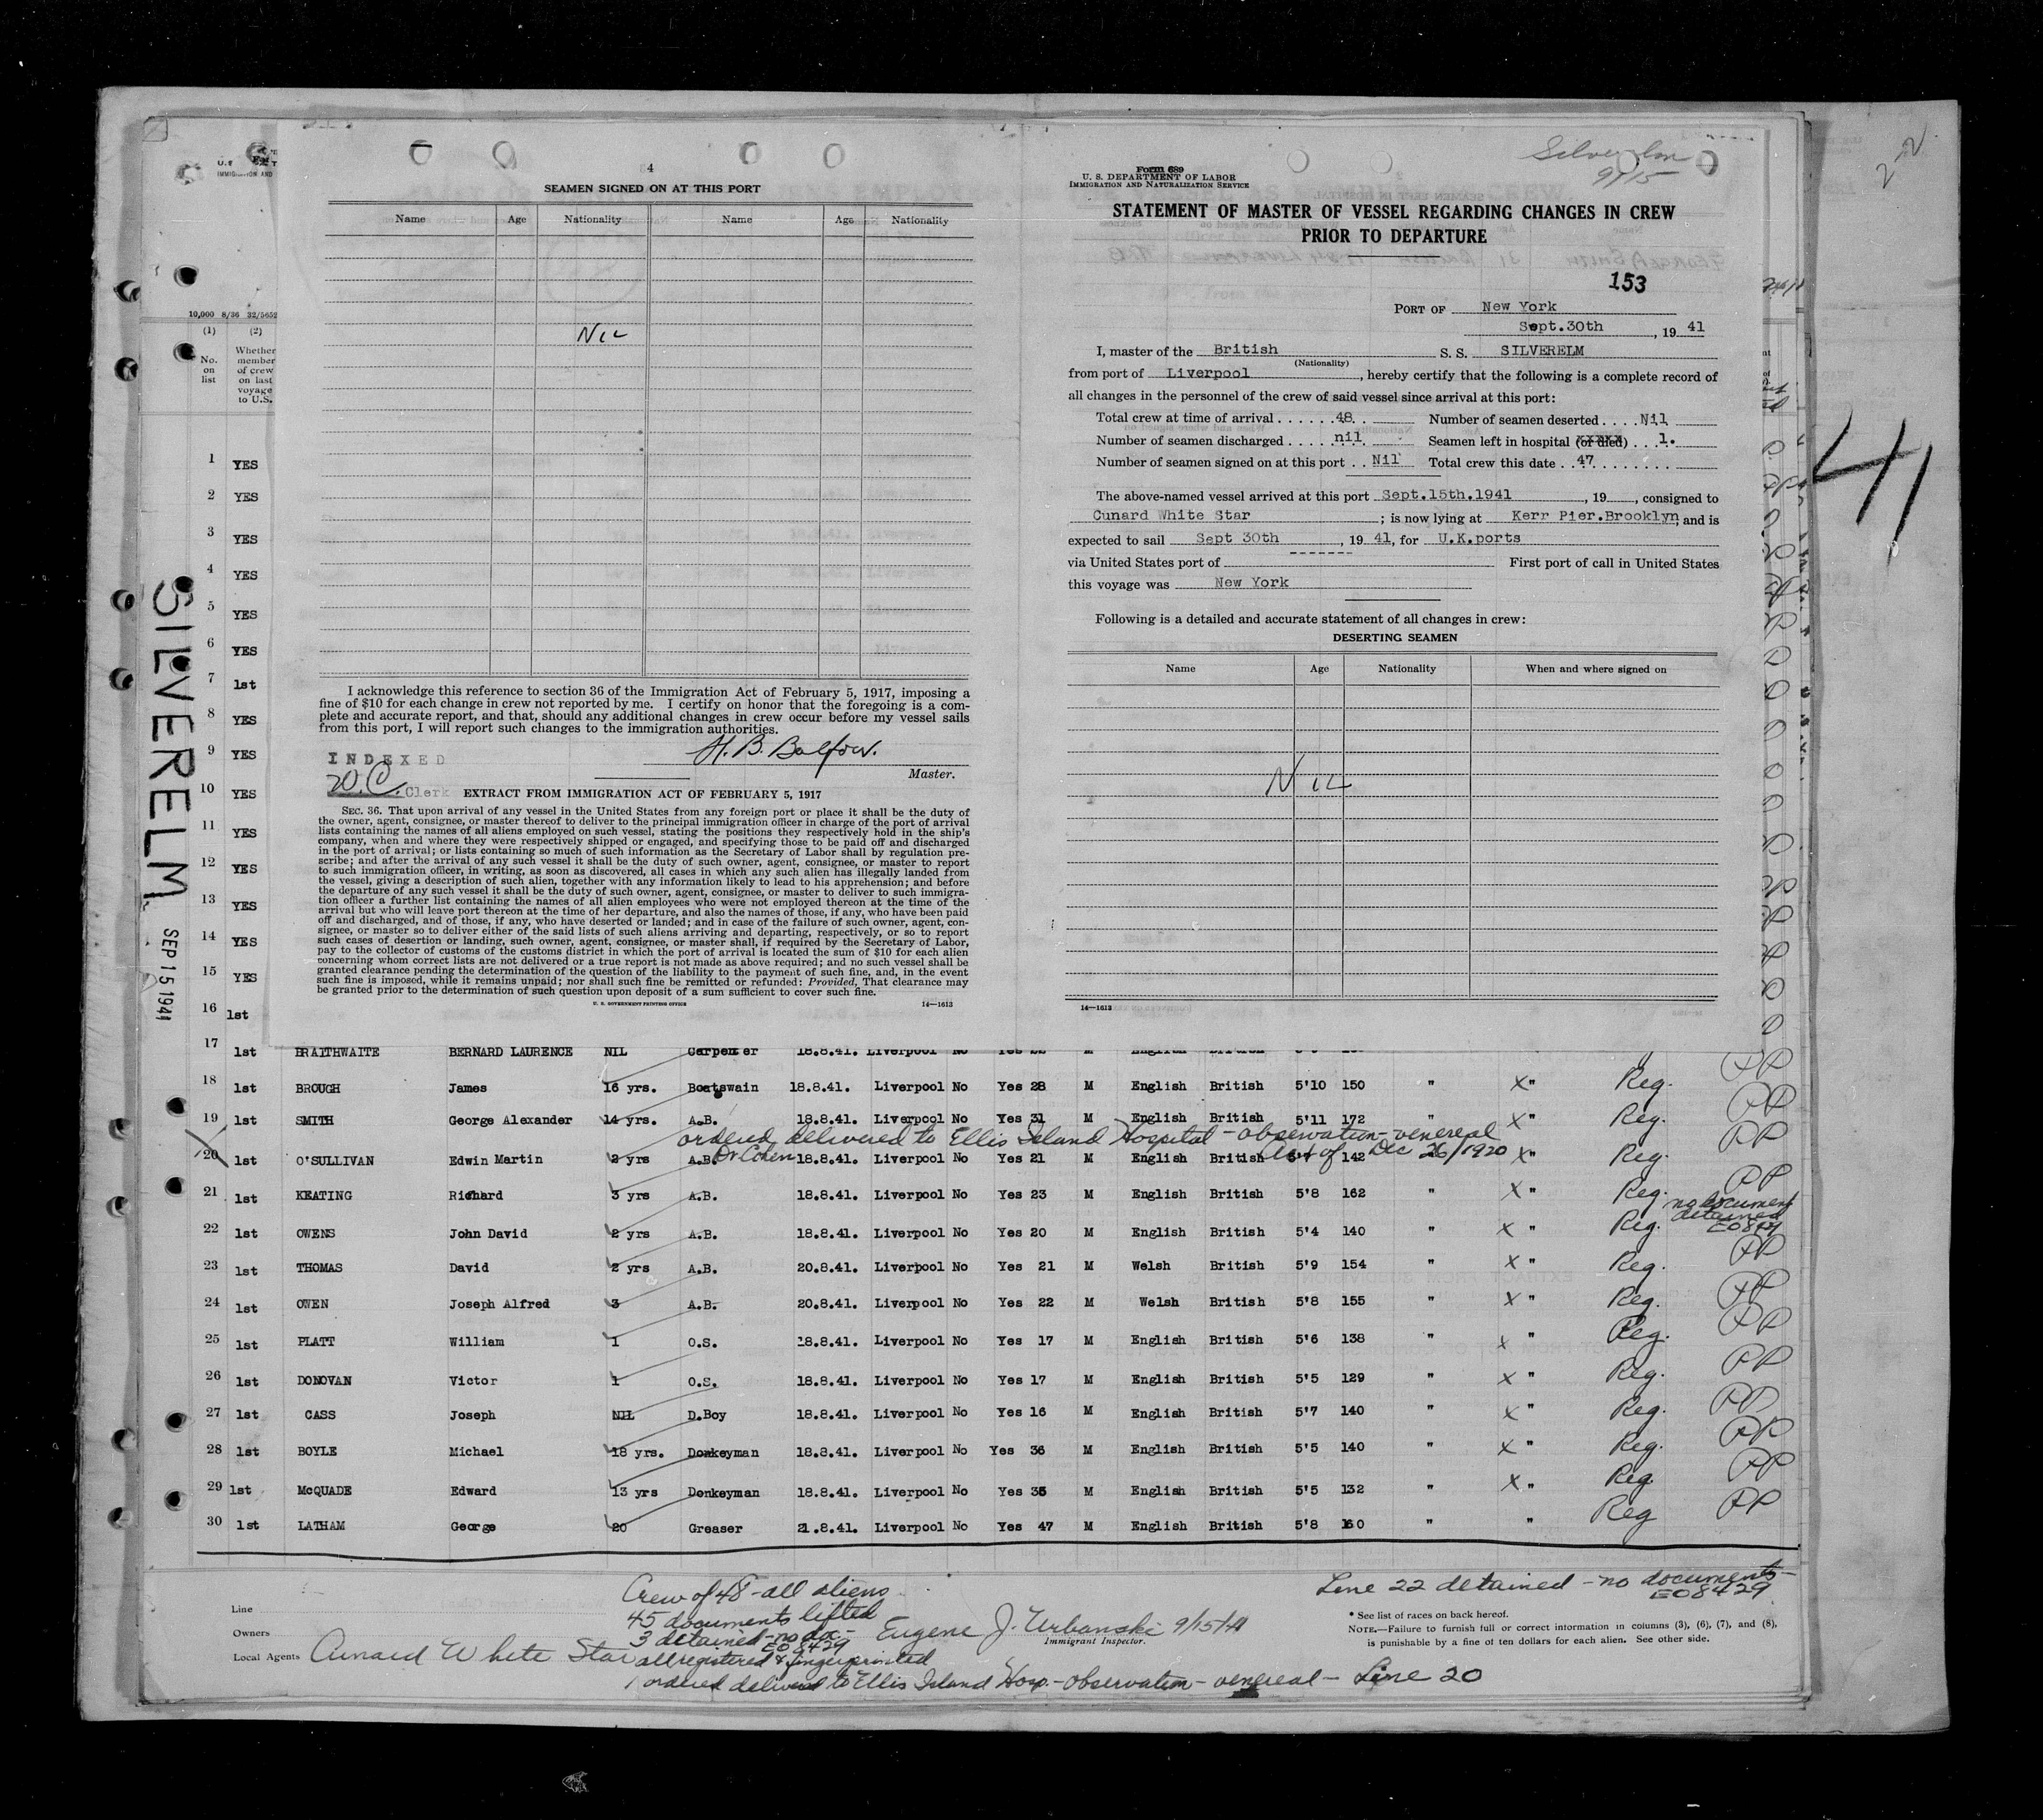 4
SEAMEN SIGNED ON AT THIS PORT
Name Age Nationality Name Age Nationality
NIL
I acknowledge this reference to section 36 of the Immigration Act of February 5, 1917, imposing a
fine of $10 for each change in crew not reported by me. I certify on honor that the foregoing is a com-
plete and accurate report, and that, should any additional changes in crew occur before my vessel sails
from this port, I will report such changes to the immigration authorities.
H. B. Balfour.
Master.
INDEXED
W.C. Clerk
EXTRACT FROM IMMIGRATION ACT OF FEBRUARY 5, 1917
SEC. 36. That upon arrival of any vessel in the United States from any foreign port or place it shall be the duty of
the owner, agent, consignee, or master thereof to deliver to the principal immigration officer in charge of the port of arrival
lists containing the names of all aliens employed on such vessel, stating the positions they respectively hold in the ship's
company, when and where they were respectively shipped or engaged, and specifying those to be paid off and discharged
in the port of arrival; or lists containing so much of such information as the Secretary of Labor shall by regulation pre-
scribe; and after the arrival of any such vessel it shall be the duty of such owner, agent, consignee, or master to report
to such immigration officer, in writing, as soon as discovered, all cases in which any such alien has illegally landed from
the vessel, giving a description of such alien, together with any information likely to lead to his apprehension; and before
the departure of any such vessel it shall be the duty of such owner, agent, consignee, or master to deliver to such immigra-
tion officer a further list containing the names of all alien employees who were not employed thereon at the time of the
arrival but who will leave port thereon at the time of her departure, and also the names of those, if any, who have been paid
off and discharged, and of those, if any, who have deserted or landed; and in case of the failure of such owner, agent, con-
signee, or master so to deliver either of the said lists of such aliens arriving and departing, respectively, or so to report
such cases of desertion or landing, such owner, agent, consignee, or master shall, if required by the Secretary of Labor,
pay to the collector of customs of the customs district in which the port of arrival is located the sum of $10 for each alien
concerning whom correct lists are not delivered or a true report is not made as above required; and no such vessel shall be
granted clearance pending the determination of the question of the liability to the payment of such fine, and, in the event
such fine is imposed, while it remains unpaid; nor shall such fine be remitted or refunded: Provided, That clearance may
be granted prior to the determination of such question upon deposit of a sum sufficient to cover such fine.
U. S. GOVERNMENT PRINTING OFFICE 14—1613
Silverelm
9/15
Form 689
U. S. DEPARTMENT OF LABOR
IMMIGRATION AND NATURALIZATION SERVICE
STATEMENT OF MASTER OF VESSEL REGARDING CHANGES IN CREW
PRIOR TO DEPARTURE
153
PORT OF New York
Sept.30th, 19 41
I, master of the British S. S. SILVERELM
(Nationality)
from port of Liverpool, hereby certify that the following is a complete record of
all changes in the personnel of the crew of said vessel since arrival at this port:
Total crew at time of arrival . . . . . . 48. Number of seamen deserted . . . . Nil
Number of seamen discharged . . . . nil Seamen left in hospital (or died) . . . 1.
Number of seamen signed on at this port . . Nil Total crew this date . . 47 . . . . . . . .
The above-named vessel arrived at this port Sept.15th.1941, 19 , consigned to
Cunard White Star ; is now lying at Kerr Pier.Brooklyn, and is
expected to sail Sept 30th, 19 41, for U.K.ports
via United States port of First port of call in United States
this voyage was New York
Following is a detailed and accurate statement of all changes in crew:
DESERTING SEAMEN
Name Age Nationality When and where signed on
NIL
14—1613
22
41
SILVERELM SEP 15 1941
10,000 8/36 32/5652
(1) (2)
No. on list
Whether member of crew on last voyage to U.S.
1 YES
2 YES
3 YES
4 YES
5 YES
6 YES
7 1st
8 YES
9 YES
10 YES
11 YES
12 YES
13 YES
14 YES
15 YES
16 1st
17 1st BRAITHWAITE BERNARD LAURENCE NIL Carpenter 18.8.41. Liverpool No Yes M English British PP
18 1st BROUGH James 16 yrs. Boatswain 18.8.41. Liverpool No Yes 28 M English British 5'10 150 " X" Reg. PP
19 1st SMITH George Alexander 14 yrs. A.B. 18.8.41. Liverpool No Yes 31 M English British 5'11 172 " X" Reg. PP
ordered delivered to Ellis Island Hospital - observation - venereal
Dr Cohen Act of Dec 26/1920
20 1st O'SULLIVAN Edwin Martin 2 yrs A.B. 18.8.41. Liverpool No Yes 21 M English British 142 X" Reg. PP
21 1st KEATING Richard 3 yrs A.B. 18.8.41. Liverpool No Yes 23 M English British 5'8 162 " X" Reg. PP
no document
detained
E08429
22 1st OWENS John David 2 yrs A.B. 18.8.41. Liverpool No Yes 20 M English British 5'4 140 " X " Reg.
23 1st THOMAS David 2 yrs A.B. 20.8.41. Liverpool No Yes 21 M Welsh British 5'9 154 " X " Reg. PP
24 1st OWEN Joseph Alfred 3 A.B. 20.8.41. Liverpool No Yes 22 M Welsh British 5'8 155 " X " Reg. PP
25 1st PLATT William 1 O.S. 18.8.41. Liverpool No Yes 17 M English British 5'6 138 " X " Reg. PP
26 1st DONOVAN Victor 1 O.S. 18.8.41. Liverpool No Yes 17 M English British 5'5 129 " X " Reg. PP
27 1st CASS Joseph NIL D.Boy 18.8.41. Liverpool No Yes 16 M English British 5'7 140 " X " Reg. PP
28 1st BOYLE Michael 18 yrs. Donkeyman 18.8.41. Liverpool No Yes 36 M English British 5'5 140 " X " Reg. PP
29 1st McQUADE Edward 13 yrs Donkeyman 18.8.41. Liverpool No Yes 35 M English British 5'5 132 " X" Reg. PP
30 1st LATHAM George 20 Greaser 21.8.41. Liverpool No Yes 47 M English British 5'8 160 " " Reg PP
Crew of 48 - all aliens
45 documents lifted
3 detained - no doc. -
E08429
all registered & fingerprinted
1 ordered delivered to Ellis Island Hosp. - observation - venereal - Line 20
Line
Owners
Local Agents Cunard White Star
Eugene J. Urbanski 9/15/41
Immigrant Inspector.
Line 22 detained - no documents -
E08429
* See list of races on back hereof.
NOTE.—Failure to furnish full or correct information in columns (3), (6), (7), and (8),
is punishable by a fine of ten dollars for each alien. See other side.